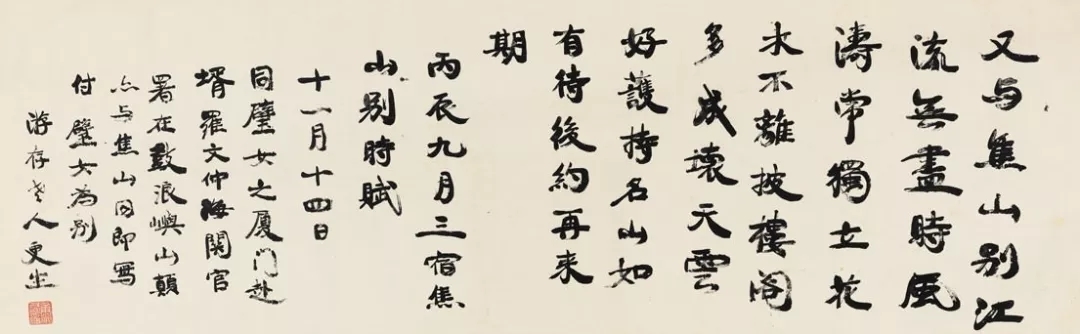 又与焦山别江
流無盡時風
濤常獨立花
木不離披樓閣
多成壞天雲
好護持名山如
有待後約再来
期
丙辰九月三宿焦
山别時賦
十一月十四日
同璧女之厦门赴
壻羅文仲海関官
署在鼓浪嶼山顛
亦与焦山同即寫
付璧女為别
游存老人更生